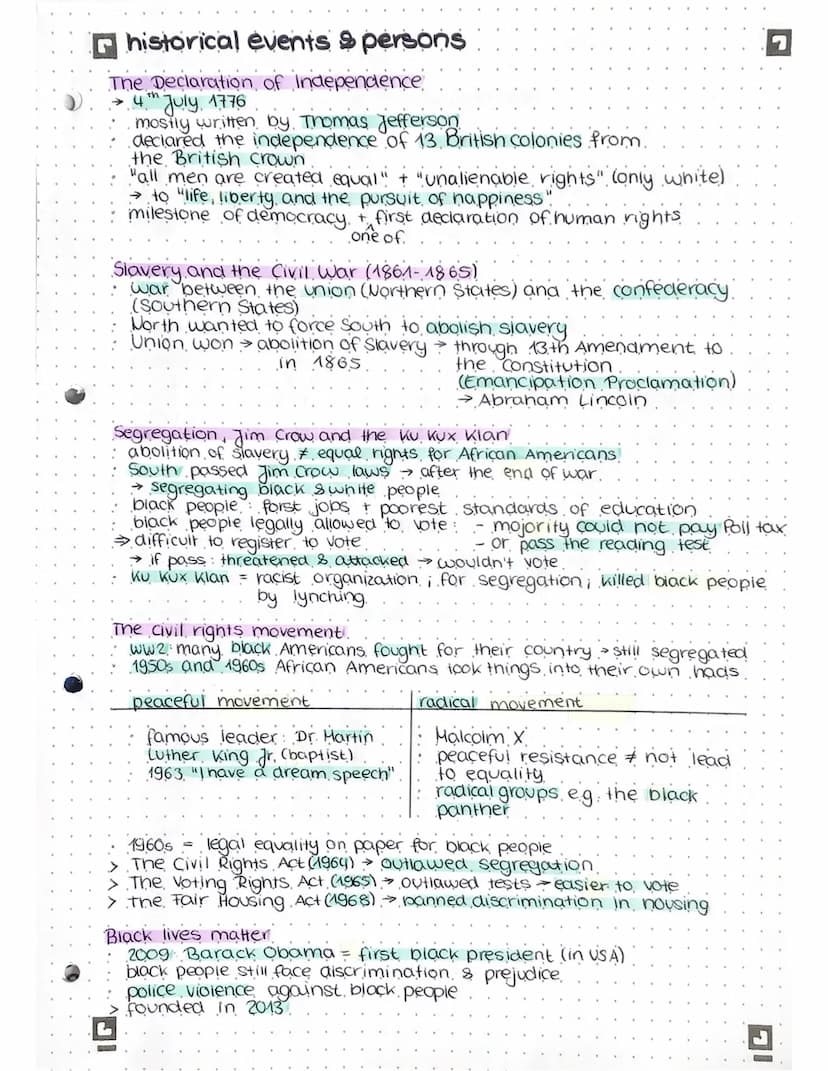 historical events & persons
The Declaration of Independence
→ 4th July, 1776
· mostly written by Thomas Jefferson
· declared the independence of 13 British colonies from
the British crown
· "all men are created equal" + "unalienable rights" (only white)
→ to "life, liberty, and the pursuit of happiness"
· milestone of democracy + first declaration of human rights
one of
Slavery and the Civil War (1861-1865)
· war between the union (Northern States) and the confederacy
(Southern States)
· North wanted to force South to abolish slavery
· Union won → abolition of slavery → through 13th Amendment to
in 1865 the constitution
(Emancipation Proclamation)
→ Abraham Lincoln
Segregation, Jim Crow and the Ku Kux Klan
· abolition of slavery ≠ equal rights for African Americans
· South passed Jim Crow laws → after the end of war
→ segregating black & white people
· black people: forst jobs + poorest standards of education
· black people legally allowed to vote: - majority could not pay Poll tax
⇒ difficult to register to vote - or pass the reading test
→ if pass: threatened & attacked → wouldn't vote
· Ku Kux Klan = racist organization; for segregation; killed black people
by lynching
The civil rights movement
· WW2: many black Americans fought for their country → still segregated
· 1950s and 1960s African Americans took things into their own hads
peaceful movement radical movement
· famous leader: Dr. Martin · Malcolm X
Luther King Jr. (baptist) · peaceful resistance ≠ not lead
· 1963 "I have a dream speech" to equality
· radical groups e.g. the black
panther
· 1960s = legal equality on paper for black people
> The Civil Rights Act (1964) → outlawed segregation
> The Voting Rights Act (1965) → outlawed tests → easier to vote
> the Fair Housing Act (1968) → banned discrimination in housing
Black lives matter
· 2009 Barack Obama = first black president (in USA)
· black people still face discrimination & prejudice
· police violence against black people
> founded in 2013